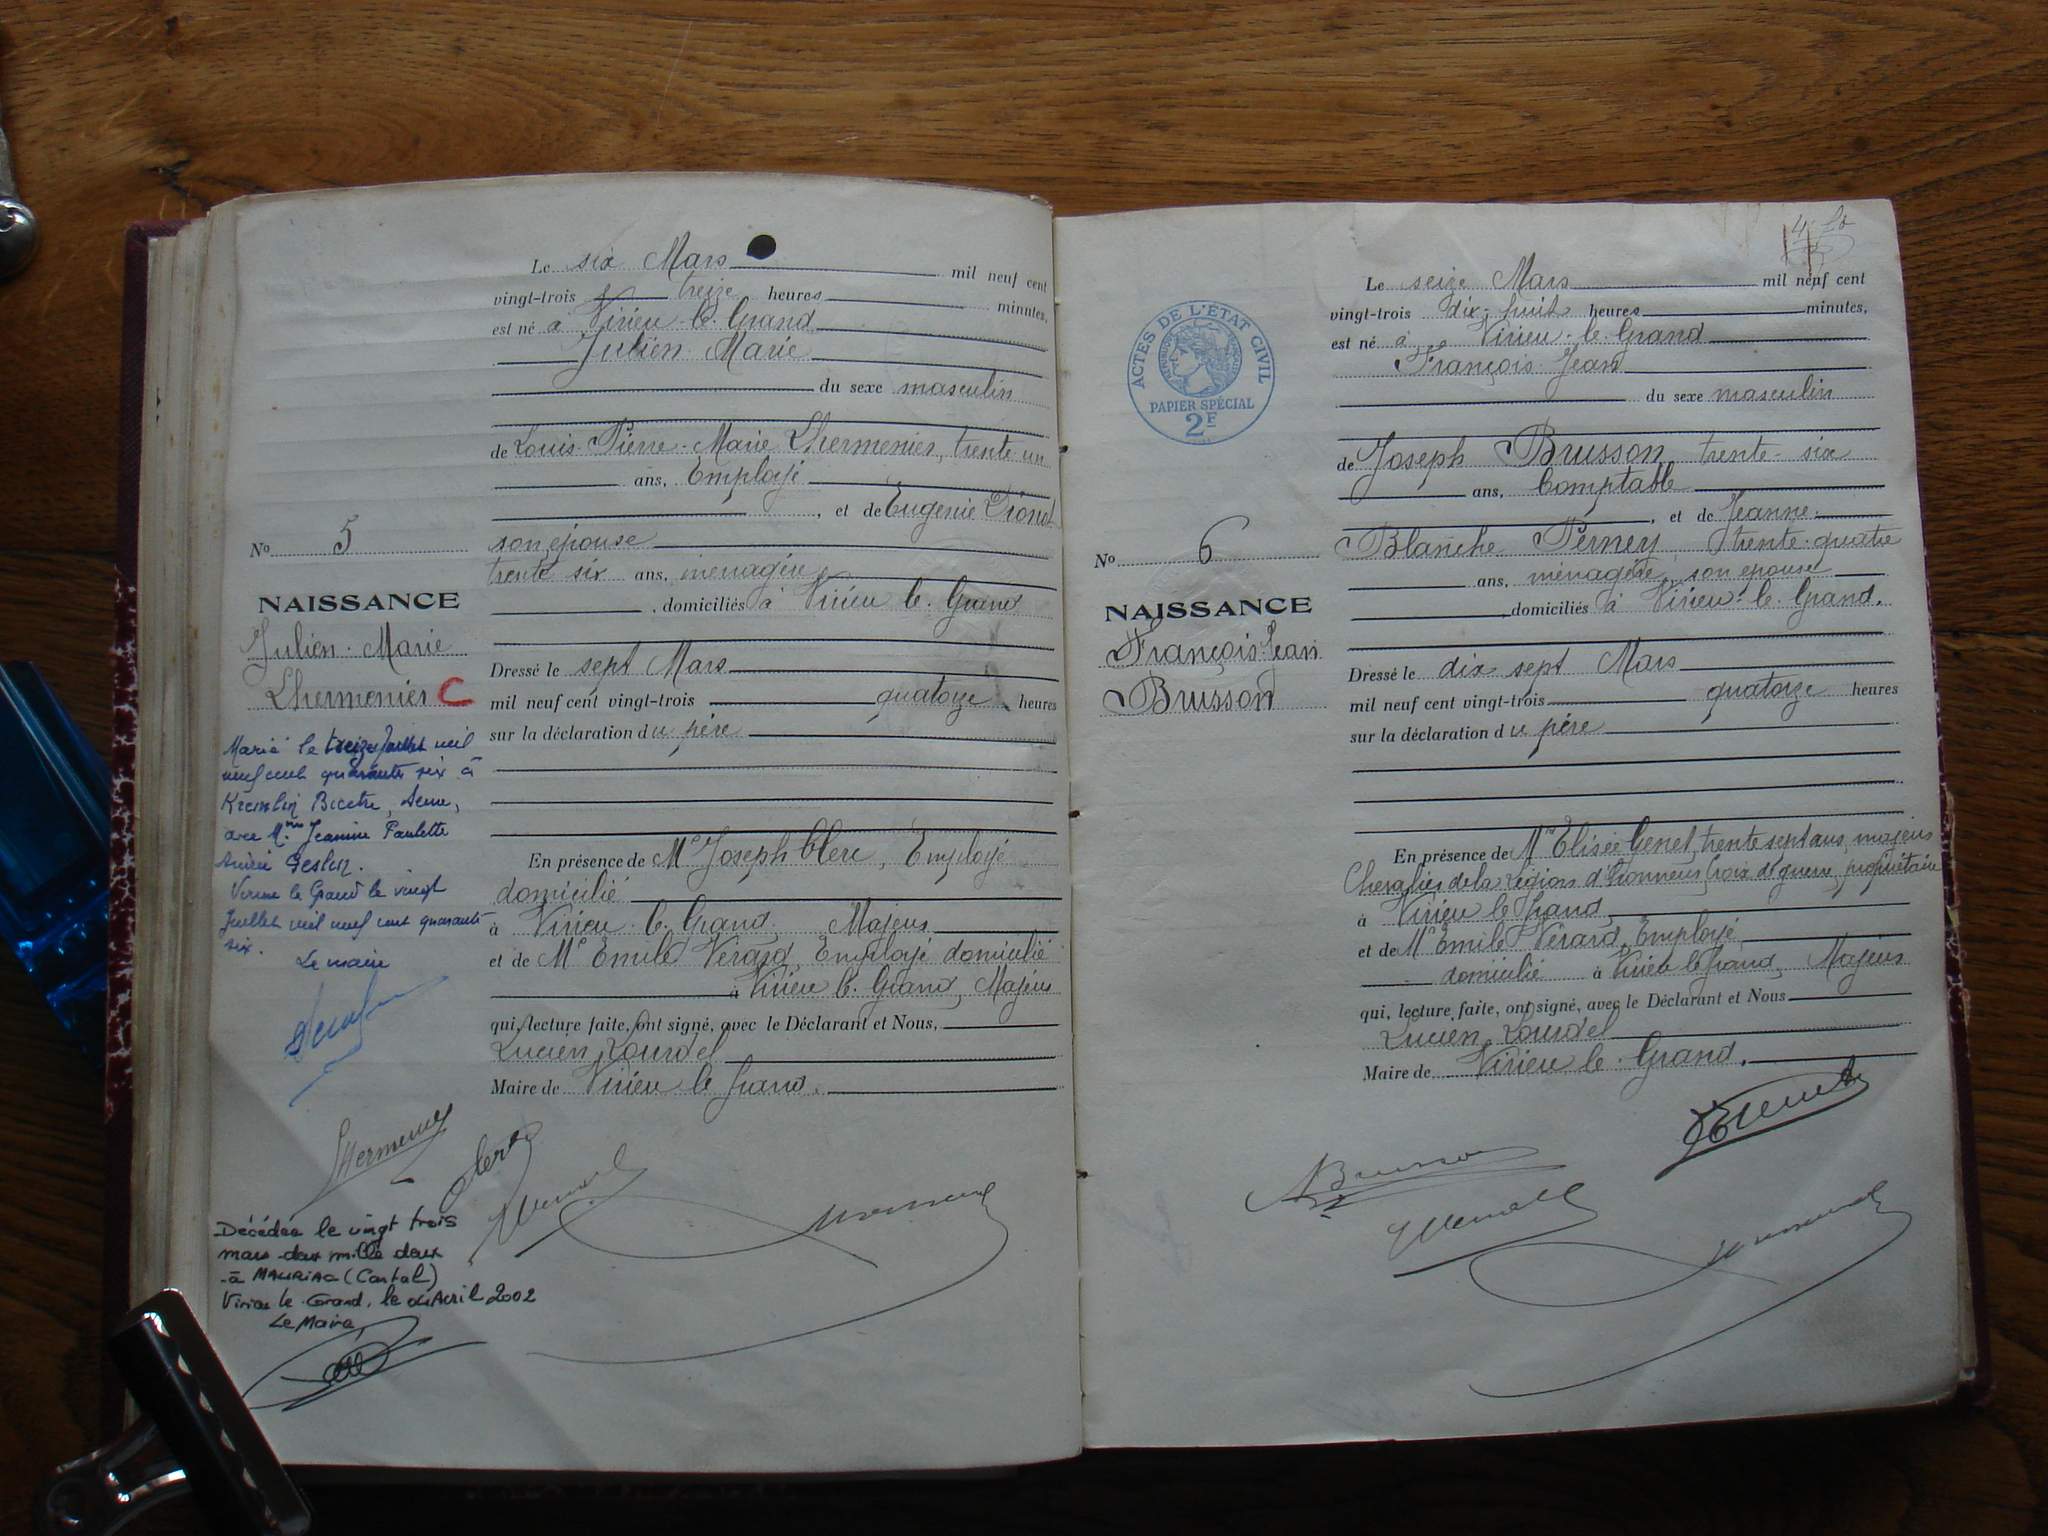 Le six Mars mil neuf cent
vingt-trois treize heures minutes,
est né à Virieu-le-Grand
Julien-Marie
du sexe masculin
de Louis-Pierre-Marie Lhermenier, trente un
ans, Employé
, et de Eugenie
son épouse
trente six ans, ménagère
, domiciliés à Virieu le Grand
Dressé le sept Mars
mil neuf cent vingt-trois quatorze heures
sur la déclaration du père
En présence de Mr Joseph Clerc, Employé
domicilié
à Virieu-le-Grand, Majeur
et de Mr Emile Vérard, Employé domicilié
à Virieu le Grand, Majeur
qui, lecture faite, ont signé, avec le Déclarant et Nous,
Lucien Lourdel
Maire de Virieu le Grand.
No 5
NAISSANCE
Julien-Marie
Lhermenier C
Marié le treize Juillet mil
neuf cent quarante six à
Kremlin Bicetre, Seine,
avec Mme Jeanine Paulette
Virieu le Grand le vingt
Juillet mil neuf cent quarante
six.
Le maire
Lhermenier
Clerc
Décédée le vingt trois
mars deux mille deux
à MAURIAC (Cantal)
Virieu le Grand, le 04 Avril 2002
Le Maire
Le seize Mars mil neuf cent
vingt-trois dix-huit heures minutes,
est né à Virieu-le-Grand
François-Jean
du sexe masculin
de Joseph Brusson trente-six
ans, Comptable
, et de Jeanne-
Blanche Perney, trente-quatre
ans, ménagère, son épouse
, domiciliés à Virieu-le-Grand.
Dressé le dix sept Mars
mil neuf cent vingt-trois quatorze heures
sur la déclaration du père
En présence de Mr Elisée Genet, trente sept ans, majeur
Chevalier de la Légion d'honneur, Croix de guerre, propriétaire
à Virieu le Grand
et de Mr Emile Vérard, Employé
domicilié à Virieu le Grand, Majeur
qui, lecture faite, ont signé, avec le Déclarant et Nous
Lucien Lourdel
Maire de Virieu le Grand.
ACTES DE L'ÉTAT CIVIL
PAPIER SPÉCIAL
2F
No 6
NAISSANCE
François-Jean
Brusson
Brusson